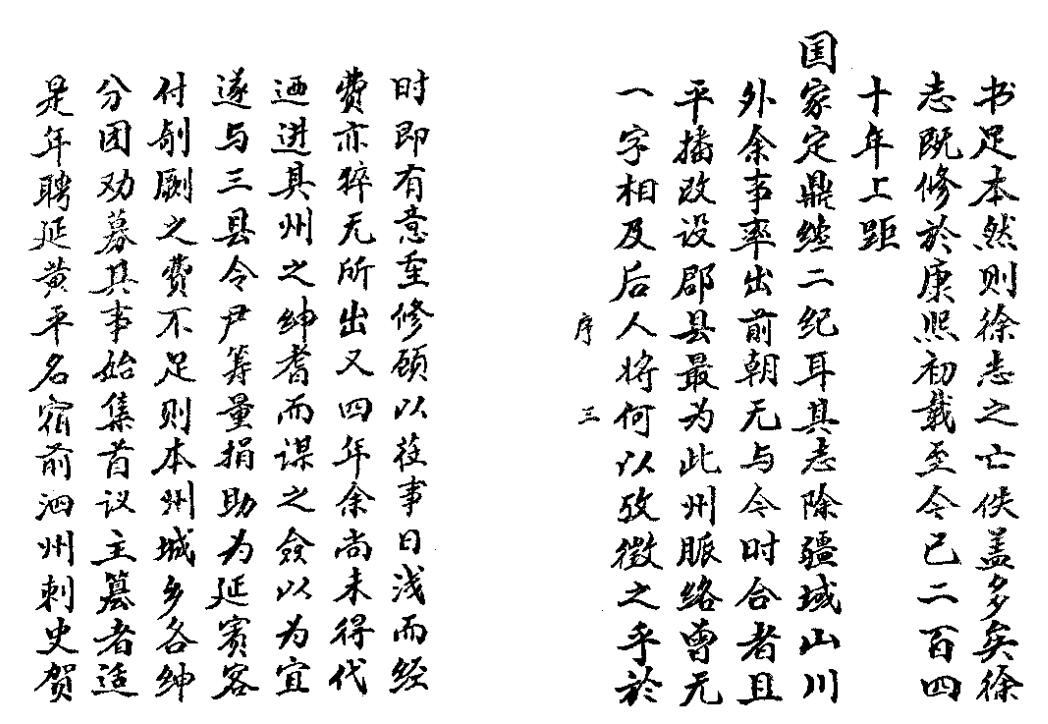 书足本然则徐志之亡佚盖多矣徐
志既修於康熙初载至今已二百四
十年上距
国家定鼎缠二纪耳其志除疆域山川
外余事率出前朝无与今时合者且
平播改设郡县最为此州脈络曾无
一字相及后人将何以攷徵之乎於
序 三
时即有意重修顾以莅事日浅而经
费亦猝无所出又四年余尚未得代
迺进其州之绅耆而谋之佥以为宜
遂与三县令尹筹量捐助为延宾客
付剞劂之费不足则本州城乡各绅
分团劝募其事始集首议主纂者适
是年聘延黄平名宿前泗州刺史贺